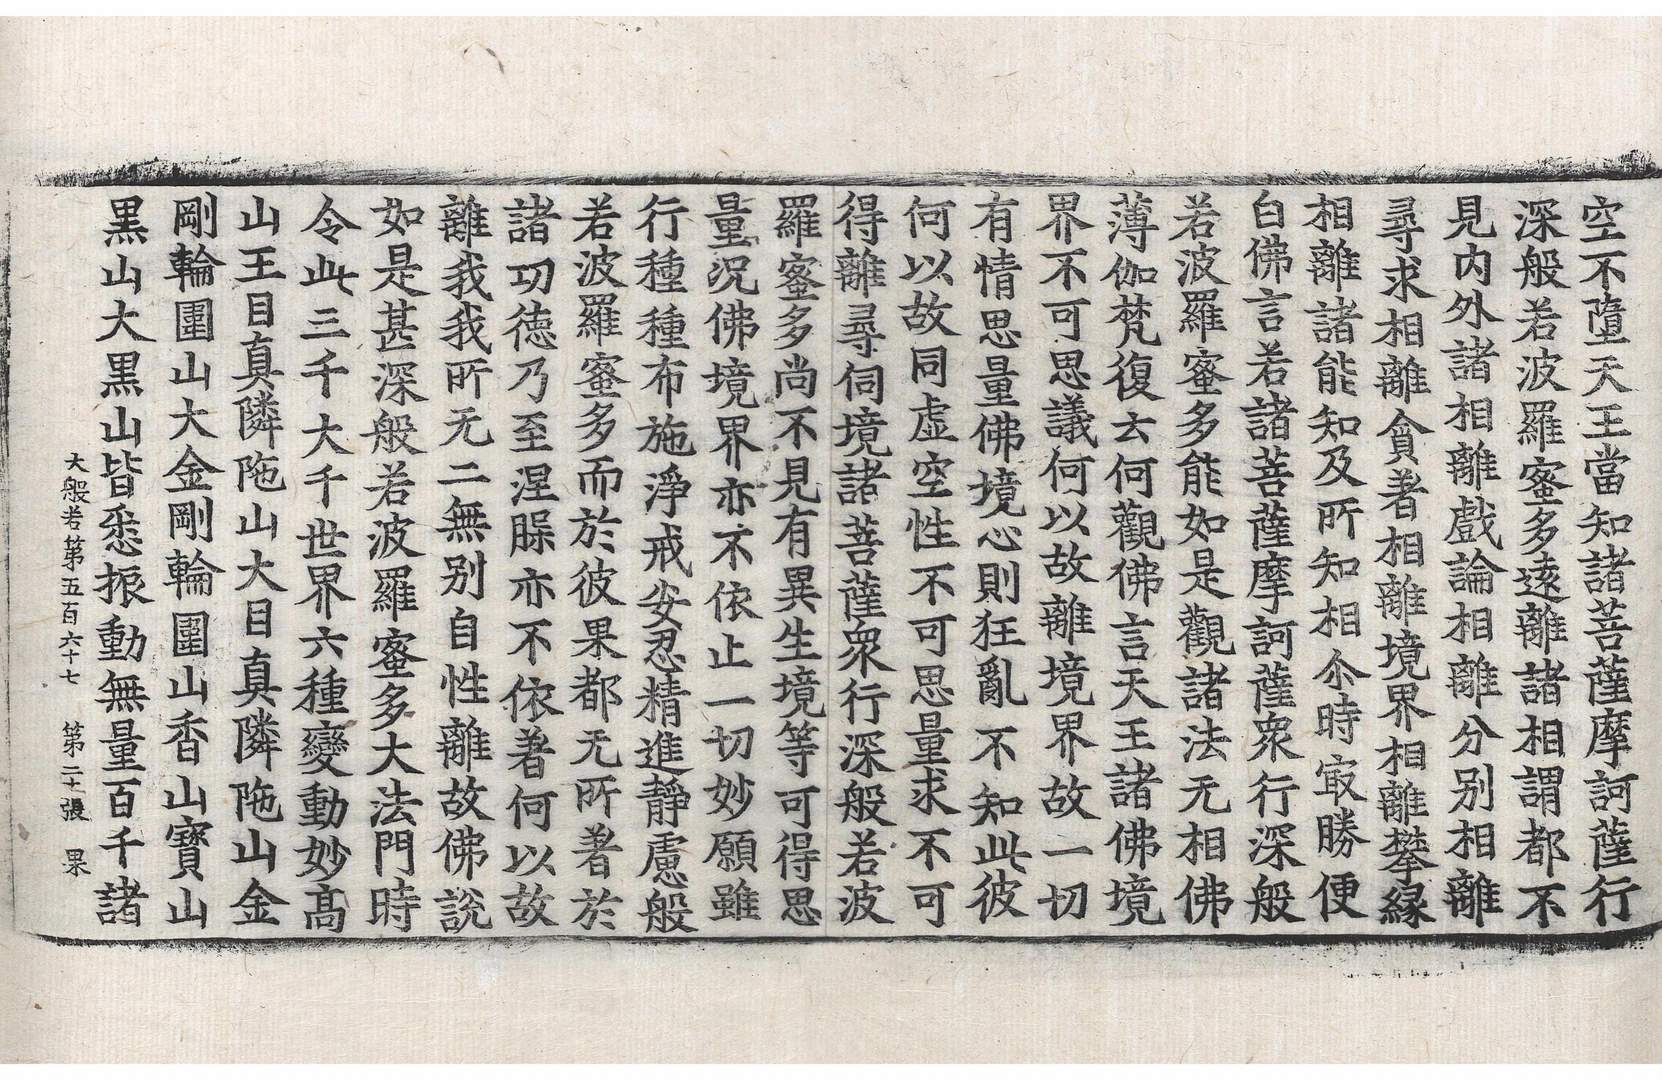 空不墮天王當知諸菩薩摩訶薩行
深般若波羅蜜多遠離諸相謂都不
見内外諸相離戲論相離分别相離
尋求相離貪著相離境界相離攀縁
相離諸能知及所知相尒時㝡勝便
白佛言若諸菩薩摩訶薩衆行深般
若波羅蜜多能如是觀諸法无相佛
薄伽梵復云何觀佛言天王諸佛境
界不可思議何以故離境界故一切
有情思量佛境心則狂亂不知此彼
何以故同虚空性不可思量求不可
得離尋伺境諸菩薩衆行深般若波
羅蜜多尚不見有異生境等可得思
量況佛境界亦不依止一切妙願雖
行種種布施淨戒安忍精進靜慮般
若波羅蜜多而於彼果都无所著於
諸功徳乃至涅槃亦不依著何以故
離我我所无二無别自性離故佛說
如是甚深般若波羅蜜多大法門時
令此三千大千世界六種變動妙髙
山王目真隣陁山大目真隣陁山金
剛輪圍山大金剛輪圍山香山寶山
黒山大黒山皆悉振動無量百千諸
大般若第五百六十七 第二十張 果